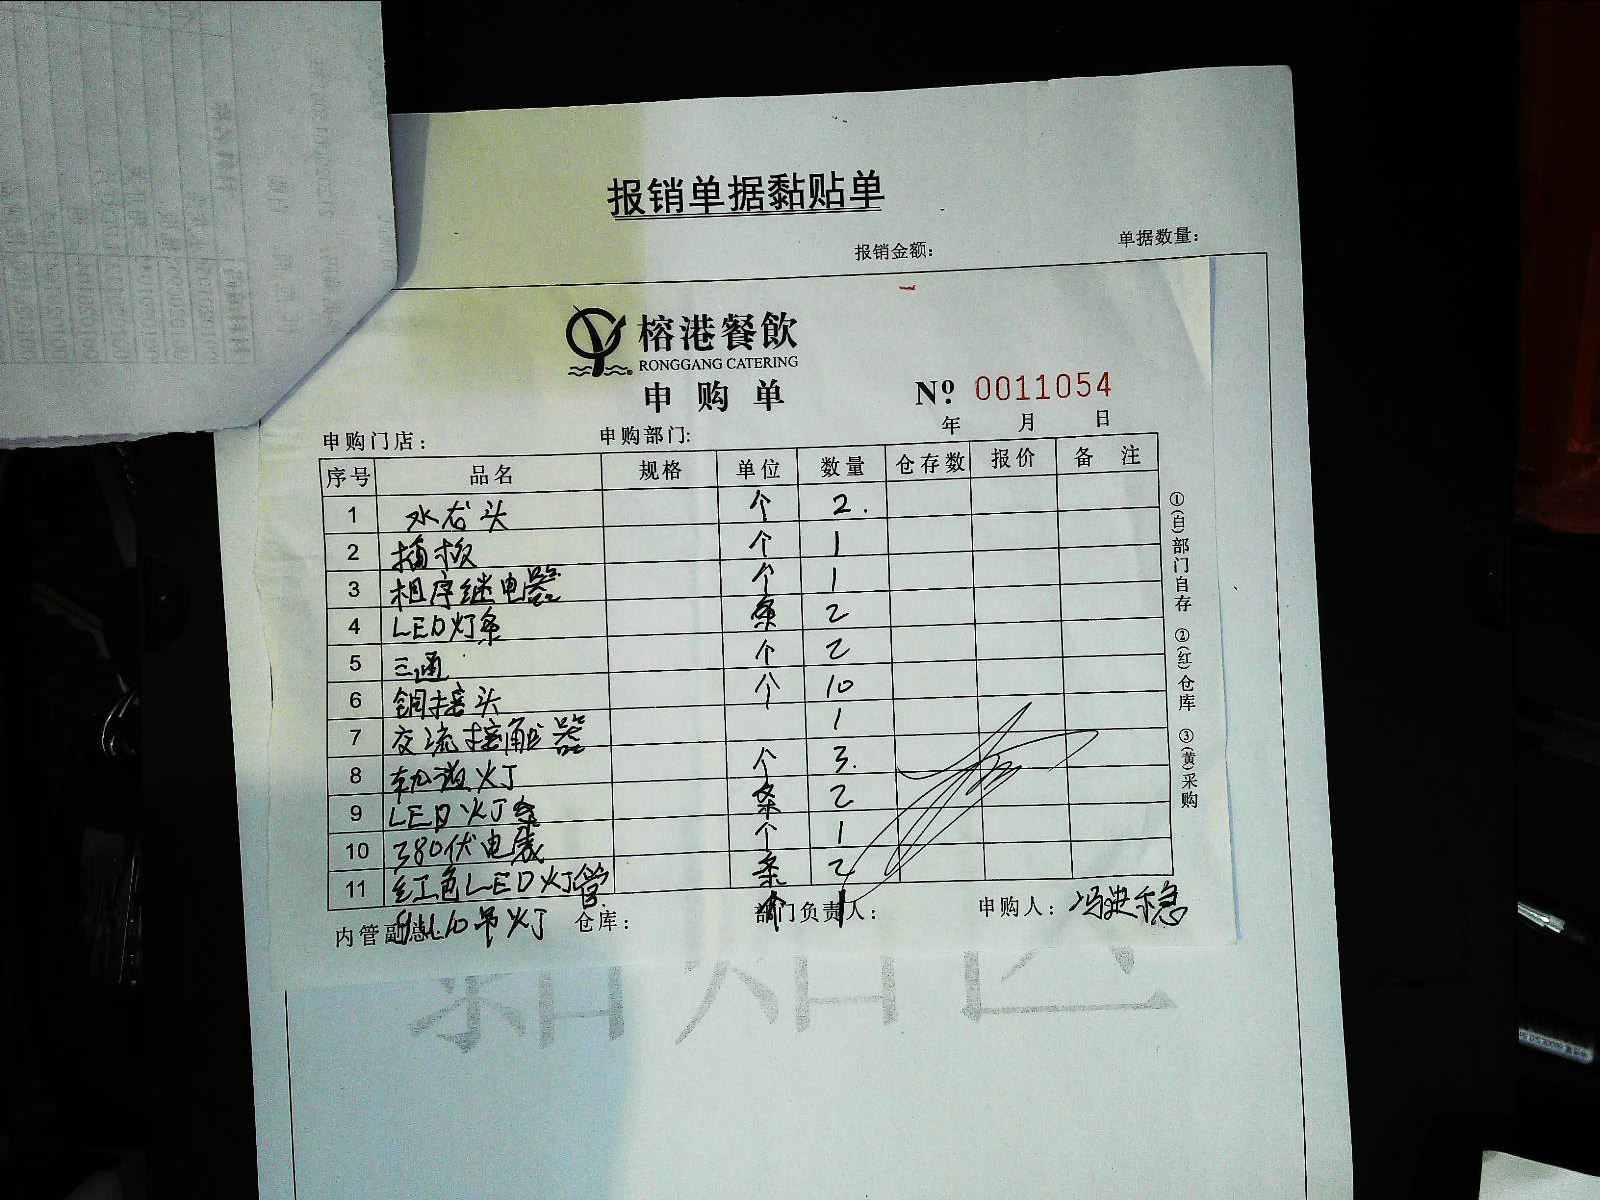 报销单据黏贴单
报销金额： 单据数量：
榕港餐飲
RONGGANG CATERING
申购单 Nº 0011054
年 月 日
申购门店： 申购部门：
序号 品名 规格 单位 数量 仓存数 报价 备注
1 水龙头 个 2.
2 插板 个 1
3 相序继电器 个 1
4 LED灯条 条 2
5 三通 个 2
6 铜接头 个 10
7 交流接触器 1
8 轨道灯 个 3.
9 LED灯条 条 2
10 380伏电表 个 1
11 红色LED灯管 条 2
吊灯 个 1
内管副总： 仓库： 部门负责人： 申购人：冯进稳
①(白)部门自存 ②(红)仓库 ③(黄)采购
粘贴区